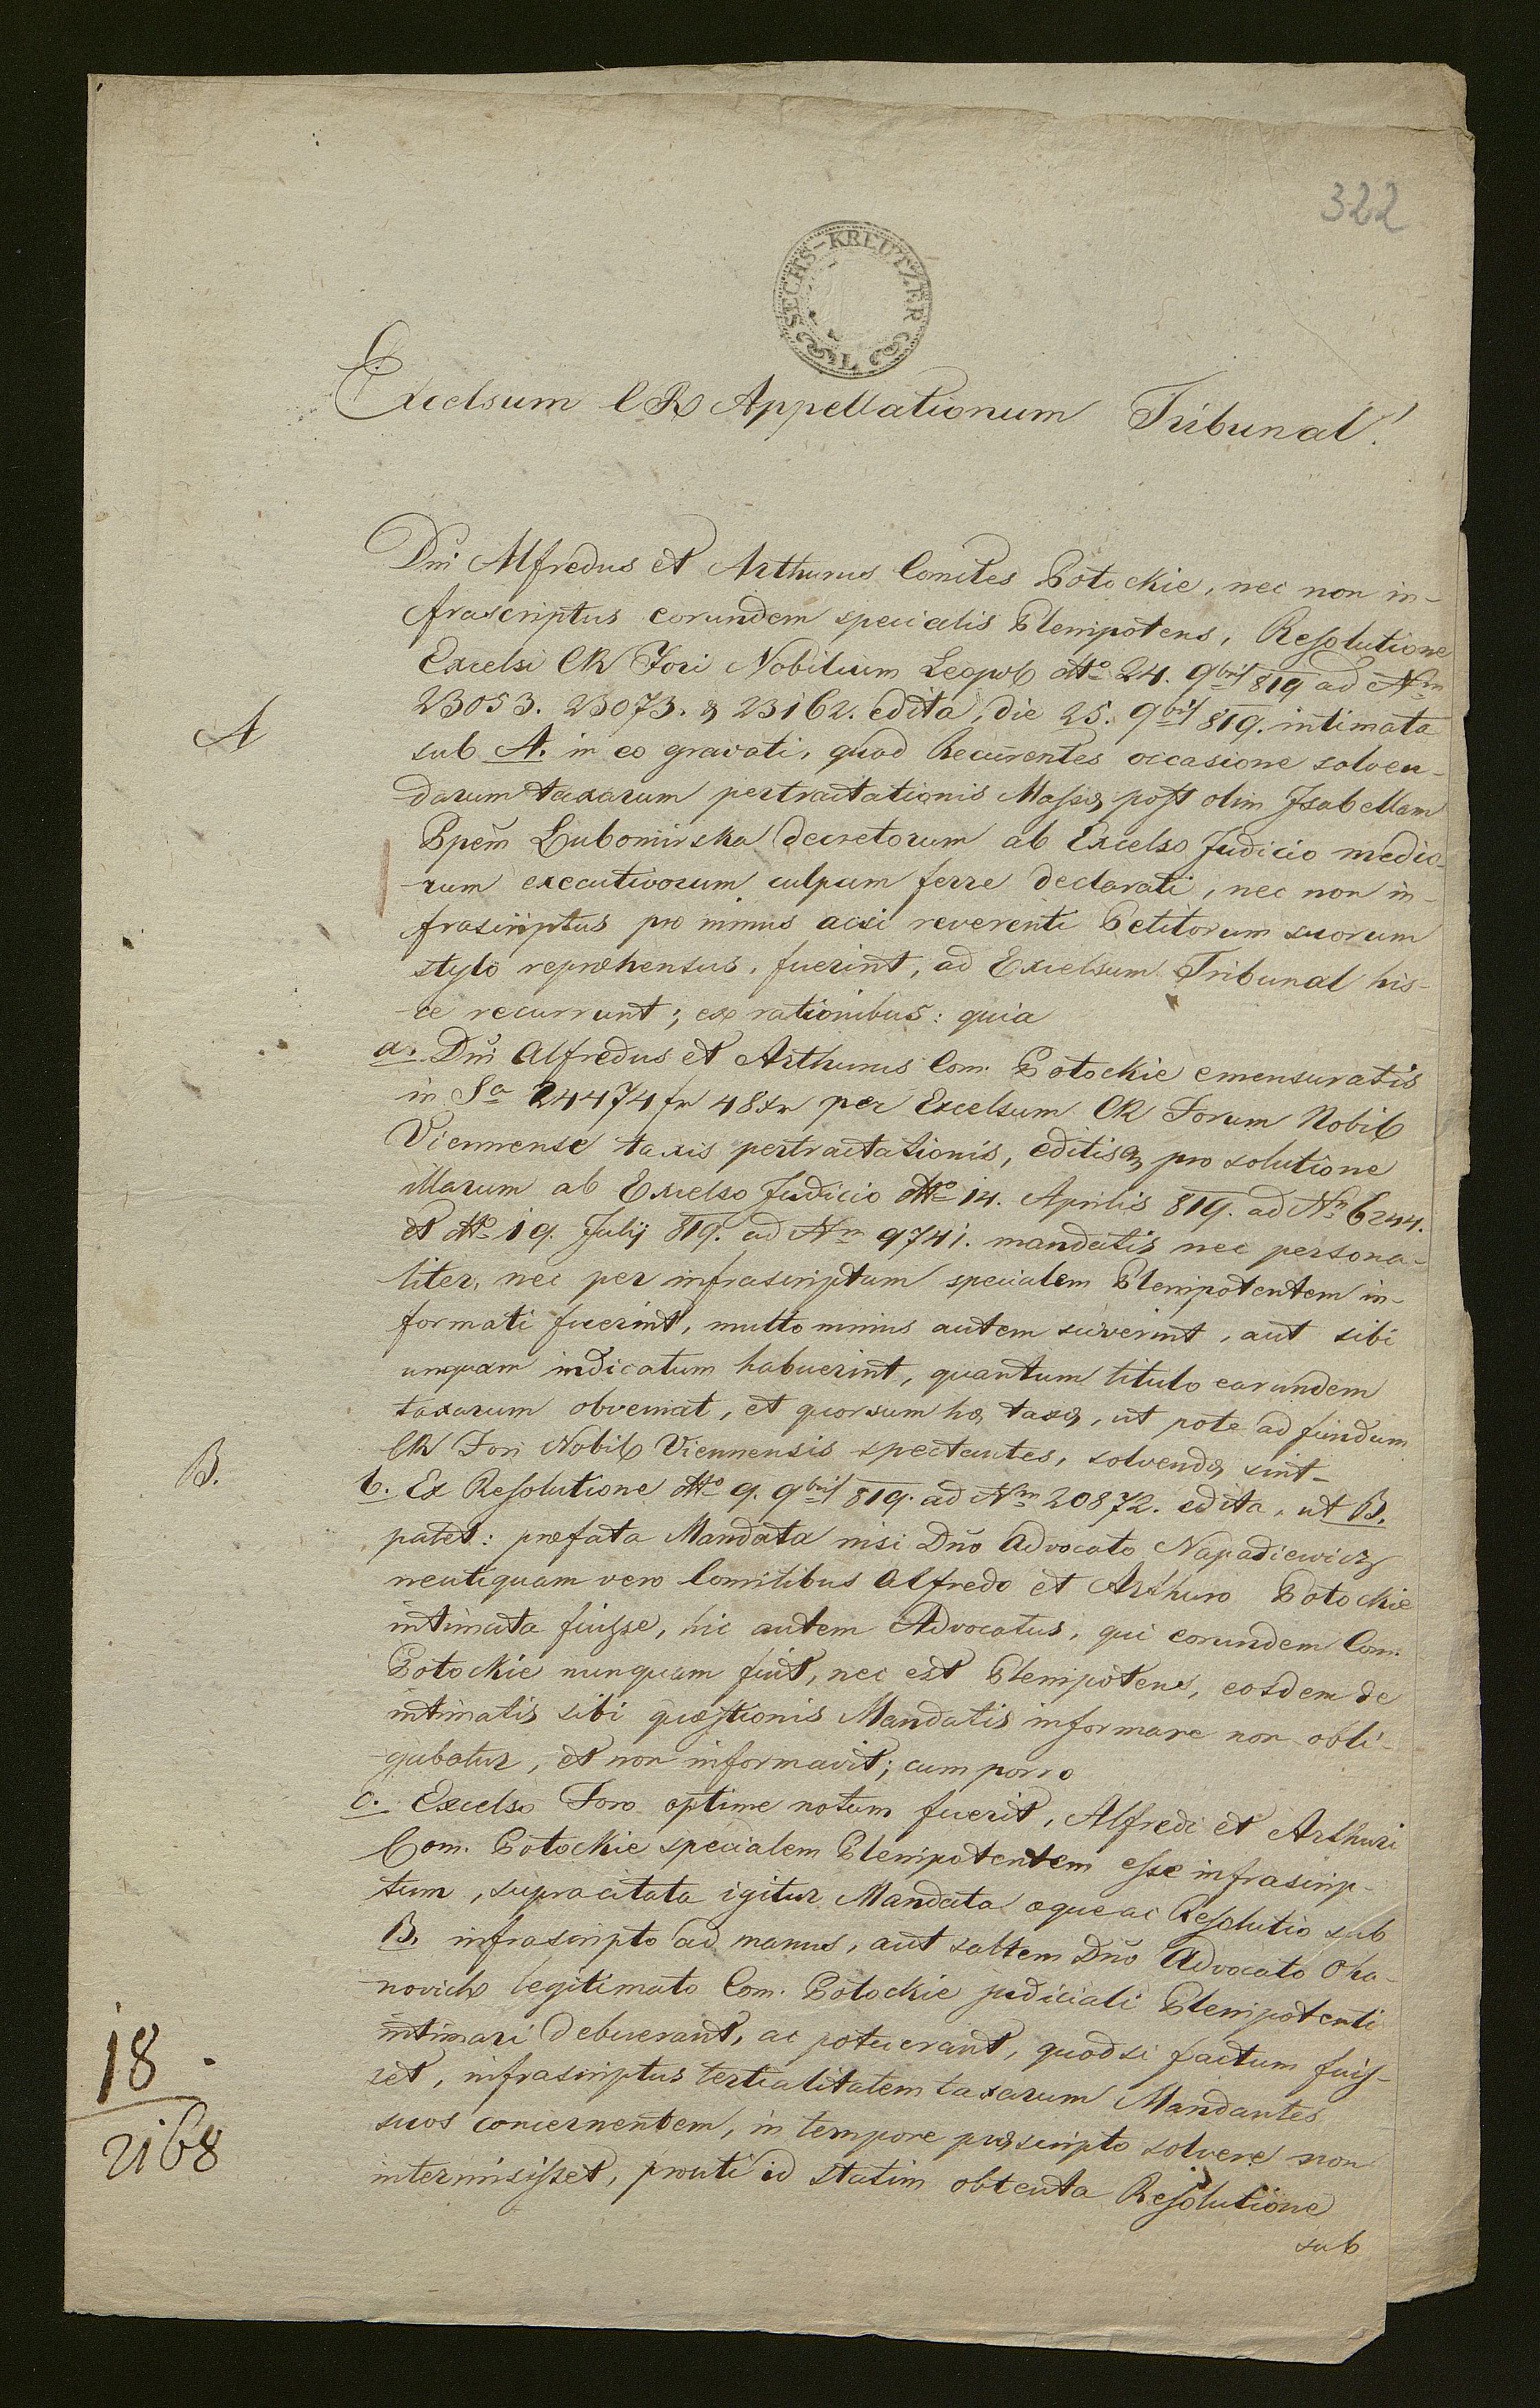 322
SECHS-KREUTZER
Excelsum CR Appellationum Tribunal!
Dni Alfredus et Arthurus Comites Potockie, nec non in-
frascriptus eorundem specialis Plenipotens, Resolutione
Excelsi CR Fori Nobilium Leopol dtto 24. 9bris 819 ad Nrm
A
23053. 23073. & 23162. edita, die 25. 9bris 819. intimata
sub A. in eo gravati, quod Recurrentes occasione solven-
darum taxarum pertractationis Massæ post olim Isabellam
Ppem Lubomirska decretorum ab Excelso Judicio medio-
rum executivorum culpam ferre declarati, nec non in-
frascriptus pro minus acsi reverenti Petitorum suorum
stylo repræhensus, fuerint, ad Excelsum Tribunal his-
ce recurrunt; ex rationibus: quia
a. Dni Alfredus et Arthurus Com. Potockie emensuratis
in Sa 24474 fr 48 xr per Excelsum CR Forum Nobil
Viennense taxis pertractationis, editisq pro solutione
illarum ab Excelso Judicio dtto 14. Aprilis 819. ad Nrm 6244.
et dtto 19. Julij 819. ad Nrm 9741. mandatis nec persona-
liter, nec per infrascriptum specialem Plenipotentem in-
formati fuerint, multo minus autem sciverint, aut sibi
unquam indicatum habuerint, quantum titulo earundem
taxarum obveniat, et quorsum hæ taxæ, ut pote ad fundum
CR Fori Nobil Viennensis spectantes, solvendæ sint-
B.
b. Ex Resolutione dtto 9. 9bris 819. ad Nrm 20872. edita, ut B.
patet: præfata Mandata nisi Dno Advocato Napadiewicz
neutiquam vero Comitibus Alfredo et Arthuro Potockie
intimata fuisse, hic autem Advocatus, qui eorundem Com.
Potockie nunquam fuit, nec est Plenipotens, eosdem de
intimatis sibi quæstionis Mandatis informare non obli-
gabatur, et non informavit; cum porro
c. Excelso Foro optime notum fuerit, Alfredi et Arthuri
Com. Potockie specialem Plenipotentem esse infrascrip-
tum, supracitata igitur Mandata æque ac Resolutio sub
B. infrascripto ad manus, aut saltem Dno Advocato Oha-
novich legitimato Com. Potockie judiciali Plenipotenti
intimari debuerant, ac potuerant, quodsi factum fuis-
set, infrascriptus tertialitatem taxarum Mandantes
suos concernentem, in tempore præscripto solvere non
intermisisset, prouti id statim obtenta Resolutione
sub
18
2168